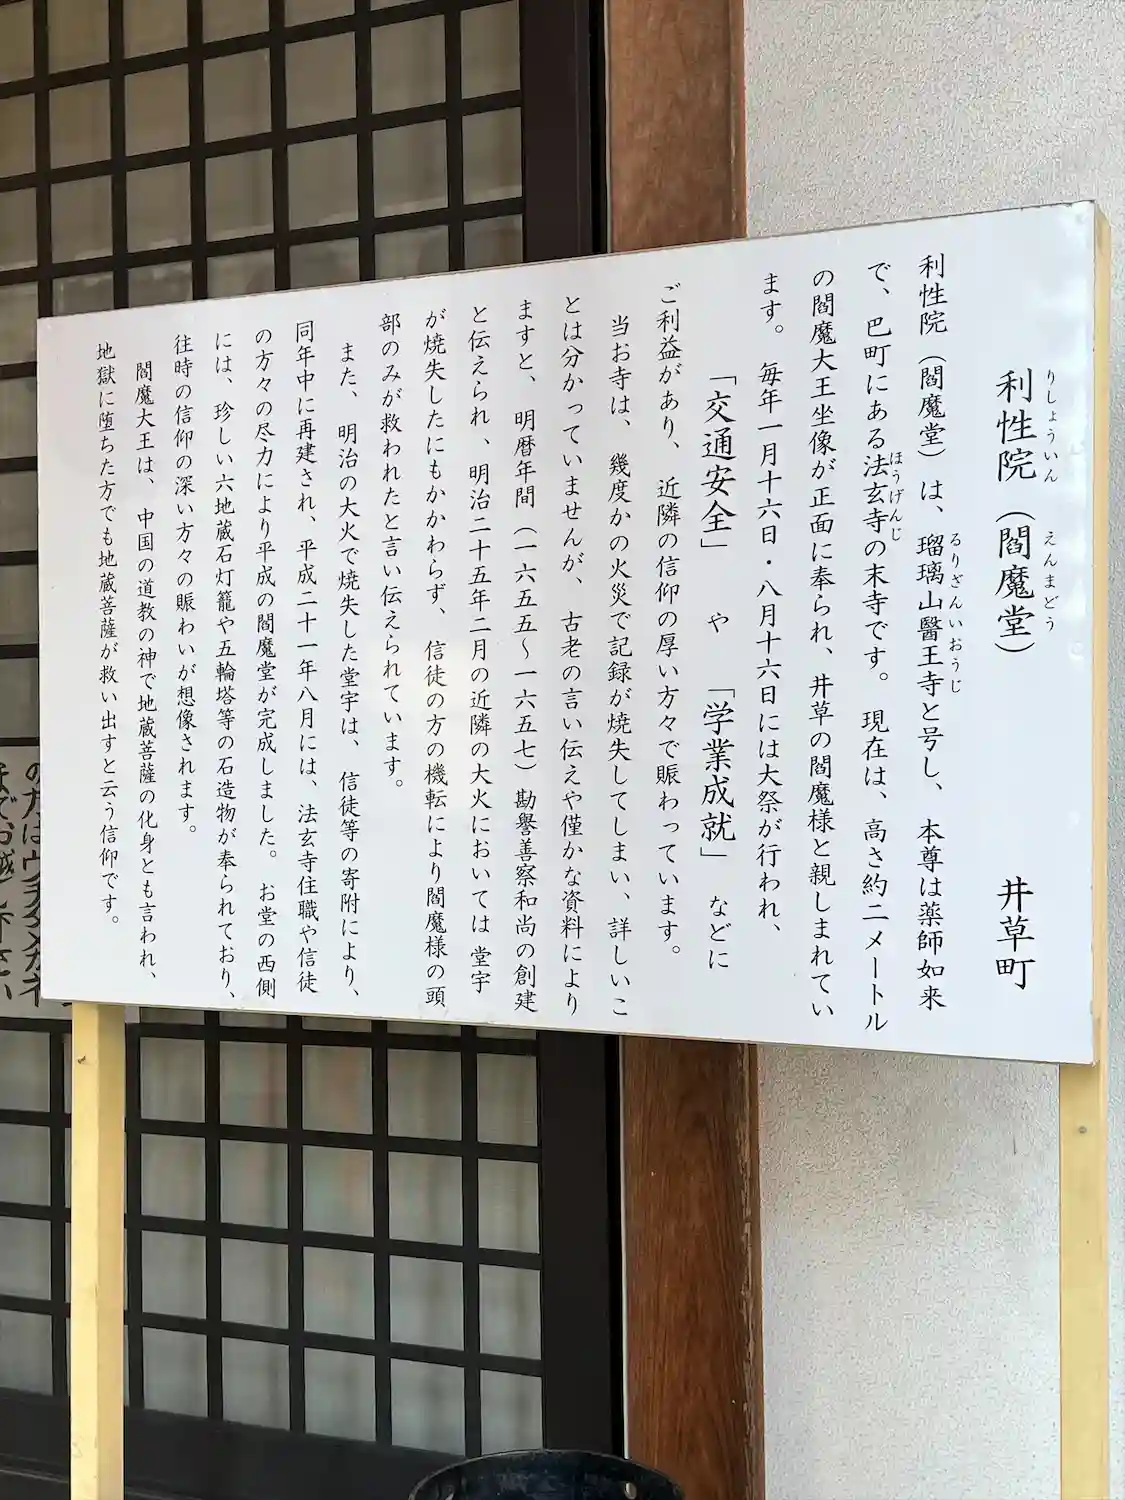 利性院（閻魔堂）　井草町
りしょういん　えんまどう
利性院（閻魔堂）は、瑠璃山醫王寺と号し、本尊は薬師如来
るりざんいおうじ
で、巴町にある法玄寺の末寺です。現在は、高さ約二メートル
ほうげんじ
の閻魔大王坐像が正面に奉られ、井草の閻魔様と親しまれてい
ます。毎年一月十六日・八月十六日には大祭が行われ、
「交通安全」　や　「学業成就」　などに
ご利益があり、近隣の信仰の厚い方々で賑わっています。
当お寺は、幾度かの火災で記録が焼失してしまい、詳しいこ
とは分かっていませんが、古老の言い伝えや僅かな資料により
ますと、明暦年間（一六五五～一六五七）勘譽善察和尚の創建
と伝えられ、明治二十五年二月の近隣の大火においては堂宇
が焼失したにもかかわらず、信徒の方の機転により閻魔様の頭
部のみが救われたと言い伝えられています。
また、明治の大火で焼失した堂宇は、信徒等の寄附により、
同年中に再建され、平成二十一年八月には、法玄寺住職や信徒
の方々の尽力により平成の閻魔堂が完成しました。お堂の西側
には、珍しい六地蔵石灯籠や五輪塔等の石造物が奉られており、
往時の信仰の深い方々の賑わいが想像されます。
閻魔大王は、中国の道教の神で地蔵菩薩の化身とも言われ、
地獄に堕ちた方でも地蔵菩薩が救い出すと云う信仰です。
の方は
までお越し下さい